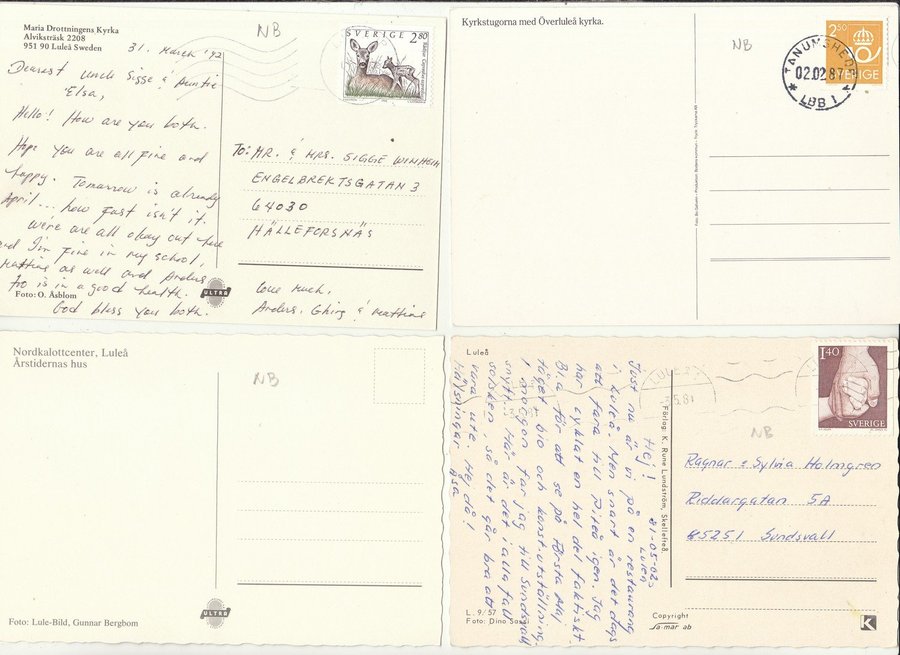 Maria Drottningens Kyrka
Alviksträsk 2208
951 90 Luleå Sweden
NB
31. March '92
SVERIGE 2.80
Dearest uncle Sigge & Auntie
Elsa,
Hello! How are you both.
Hope you are all fine and
happy. Tomorrow is already
April... how fast isn't it.
We're are all okay out here
and I'm fine in my school,
Mattias as well and Anders
too is in a good health.
God bless you both.
Foto: O. Åsblom
ULTRA
To: MR. & MRS. SIGGE WINHEIM
ENGELBREKTSGATAN 3
64030
HÄLLEFORSNÄS
Love Much,
Anders, Ghing & Mattias
Kyrkstugorna med Överluleå kyrka.
NB
2.50
SVERIGE
TANUMSHEDE
02.02.87
LBB 1
Nordkalottcenter, Luleå
Årstidernas hus
NB
Foto: Lule-Bild, Gunnar Bergbom
ULTRA
Luleå
Hej!
81-05-02
Luleå
Just nu är vi på en restaurang
i Luleå. Men snart är det dags
att fara till Piteå igen. Jag
har cyklat en hel del faktiskt.
Bla för att se på Första Maj
tåget bio och konst.utställning.
I morgon far jag till Sundsvall
snyft. Här är det i alla fall
solsken, så det går bra att
vara ute. Hej då!
Hälsningar Åsa
Förlag: K. Rune Lundström, Skellefteå.
L. 9/57
Foto: Dino Sassi
1.40
SVERIGE
NB
Ragnar o Sylvia Holmgren
Riddargatan 5A
85251 Sundsvall
Copyright
sa-mar ab
K